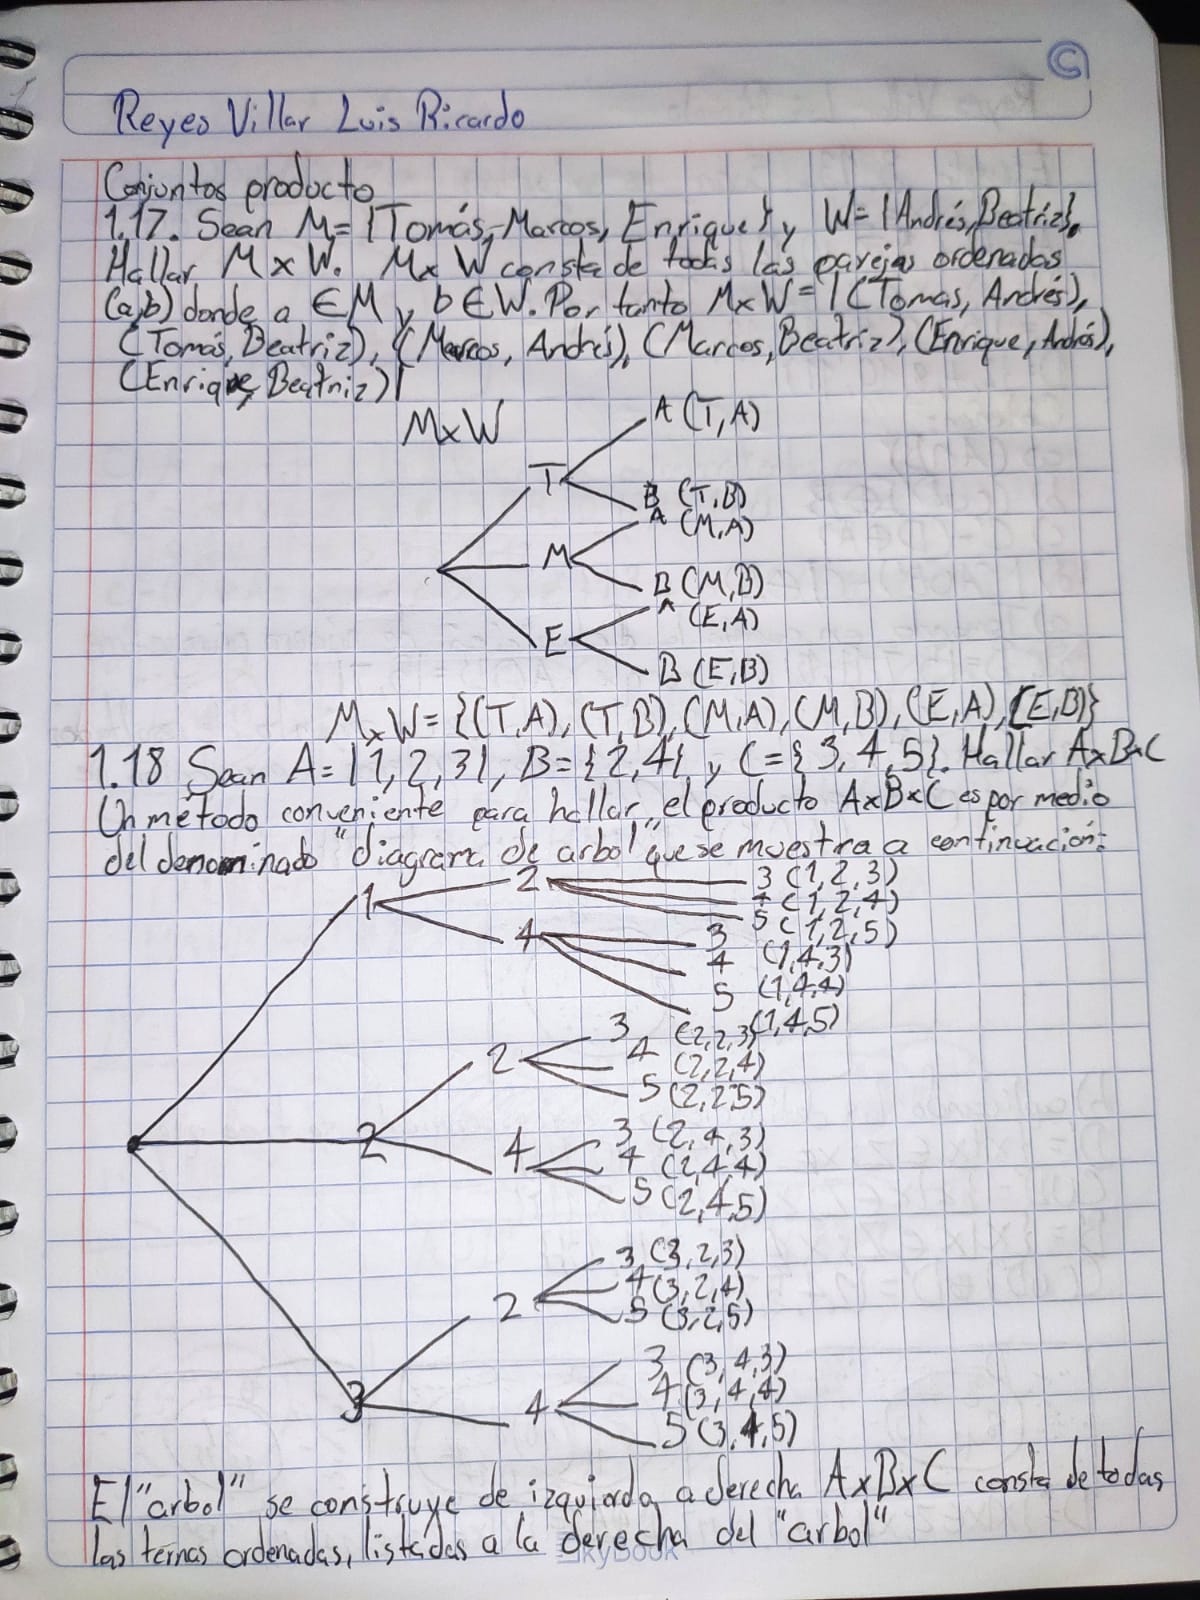 C
Reyes Villar Luis Ricardo
Conjuntos producto
1.17. Sean M={Tomás, Marcos, Enrique} y W={Andrés, Beatriz}.
Hallar MxW. MxW consta de todas las parejas ordenadas
(a,b) donde a ∈M y b∈W. Por tanto MxW={(Tomas, Andrés),
(Tomás, Beatriz), (Marcos, Andrés), (Marcos, Beatriz), (Enrique, Andrés),
(Enrique, Beatriz)}
MxW
A (T,A)
T
B (T,B)
A (M,A)
M
B (M,B)
A (E,A)
E
B (E,B)
MxW= {(T,A), (T,B), (M,A), (M,B), (E,A), (E,B)}
1.18 Sean A={1,2,3}, B={2,4} y C={3,4,5}. Hallar AxBxC
Un método conveniente para hallar el producto AxBxC es por medio
del denominado "diagrama de arbol" que se muestra a continuación:
1 2 3 (1,2,3)
4 (1,2,4)
5 (1,2,5)
4 3 (1,4,3)
4 (1,4,4)
5 (1,4,5)
2 3 (2,2,3)
4 (2,2,4)
5 (2,2,5)
2
4 3 (2,4,3)
4 (2,4,4)
5 (2,4,5)
2 3 (3,2,3)
4 (3,2,4)
5 (3,2,5)
3
4 3 (3,4,3)
4 (3,4,4)
5 (3,4,5)
El "arbol" se construye de izquierda a derecha AxBxC consta de todas
las ternas ordenadas, listadas a la derecha del "arbol"
SkyBook